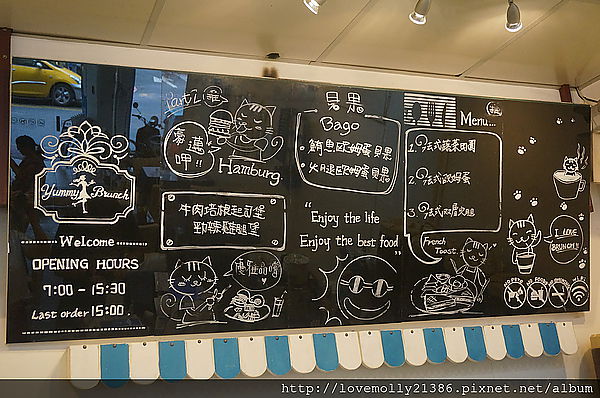 Yummy Brunch
Welcome
OPENING HOURS
7:00 - 15:30
Last order 15:00
Part 2
Hamburg
牛肉培根起司堡
勁辣雞腿堡
貝果
Bago
鮪魚歐姆蛋貝果
火腿歐姆蛋貝果
"Enjoy the life
Enjoy the best food"
Menu...
1. 法式蔬菜田園
2. 法式歐姆蛋
3. 法式双層火腿
French
Toast
I LOVE
BRUNCH!
http://lovemolly21386.pixnet.net/album